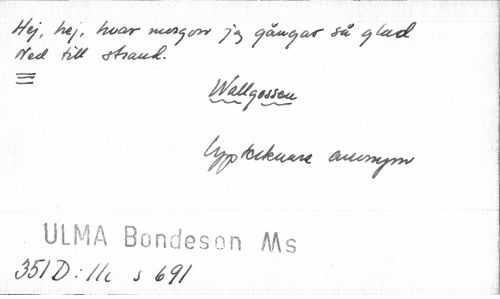 Hej, hej, hvar morgon jag gångar så glad
Ned till strand.
Wallgossen
Upptecknare anonym
ULMA Bondeson Ms
351 D: 11c s 691